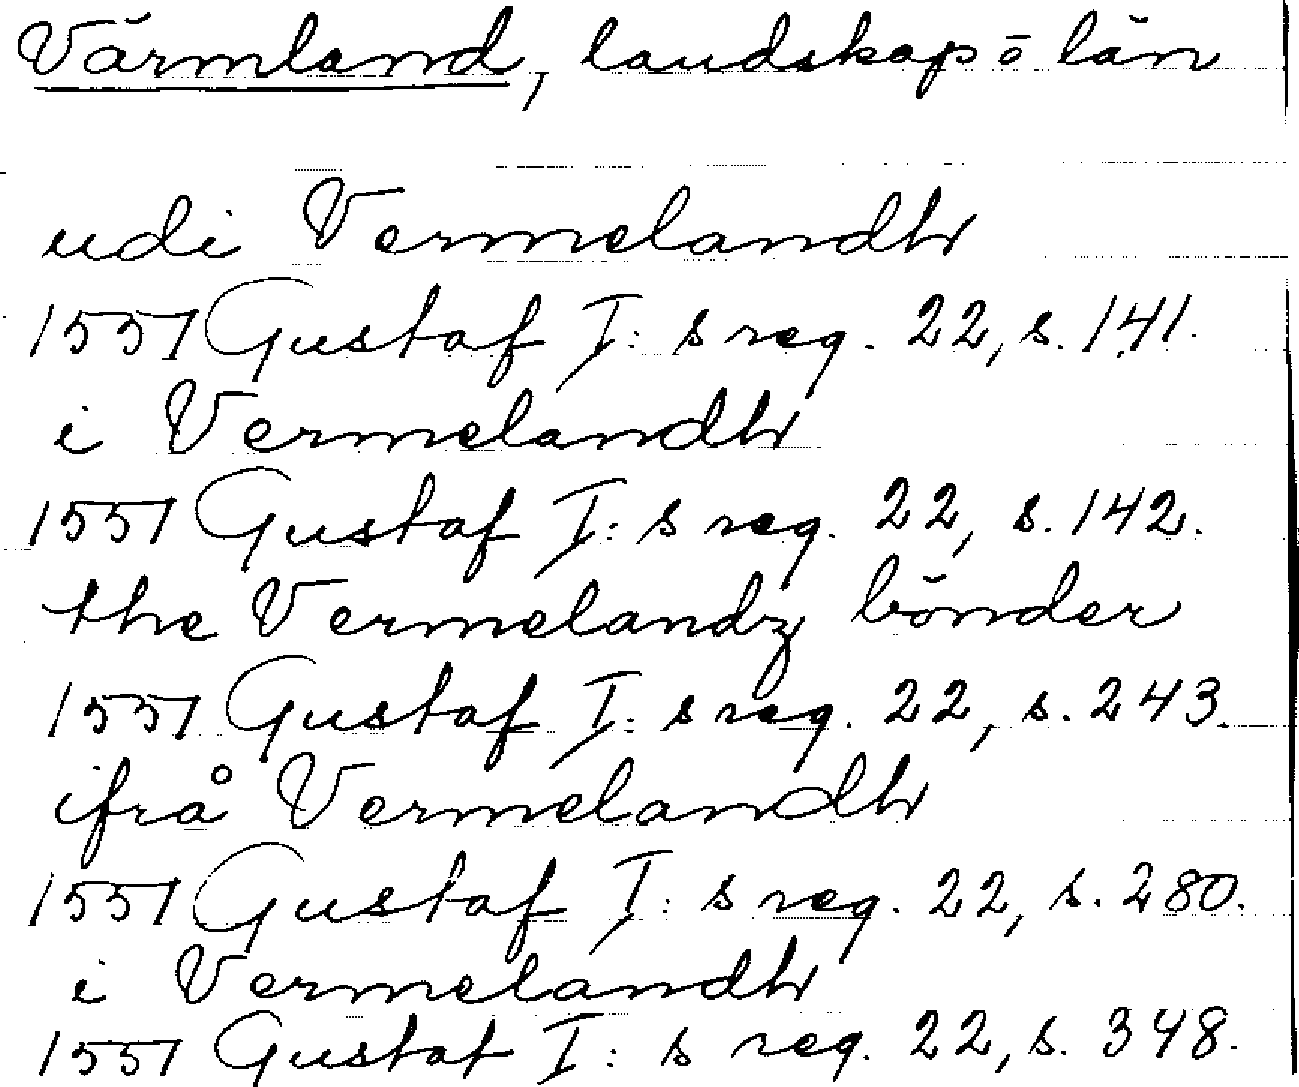 Värmland, landskap o län
udi Vermelandh
1551 Gustaf I: s reg. 22, s. 141.
i Vermelandh
1551 Gustaf I: s reg. 22, s. 142.
the Vermelandz bönder
1551 Gustaf I: s reg. 22, s. 243.
ifrå Vermelandh
1551 Gustaf I: s reg. 22, s. 280.
i Vermelandh
1551 Gustaf I: s reg. 22, s. 348.